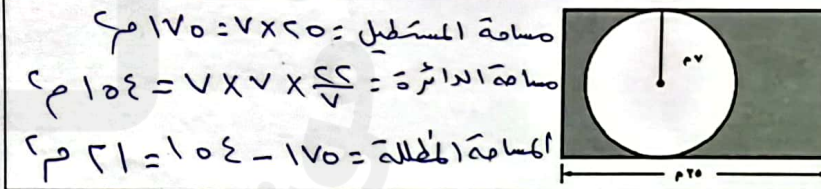 مساحة المستطيل = ٢٥ × ٧ = ١٧٥ م٢
مساحة الدائرة = ٢٢/٧ × ٧ × ٧ = ١٥٤ م٢
المساحة المظللة = ١٧٥ – ١٥٤ = ٢١ م٢
٧م
٢٥م